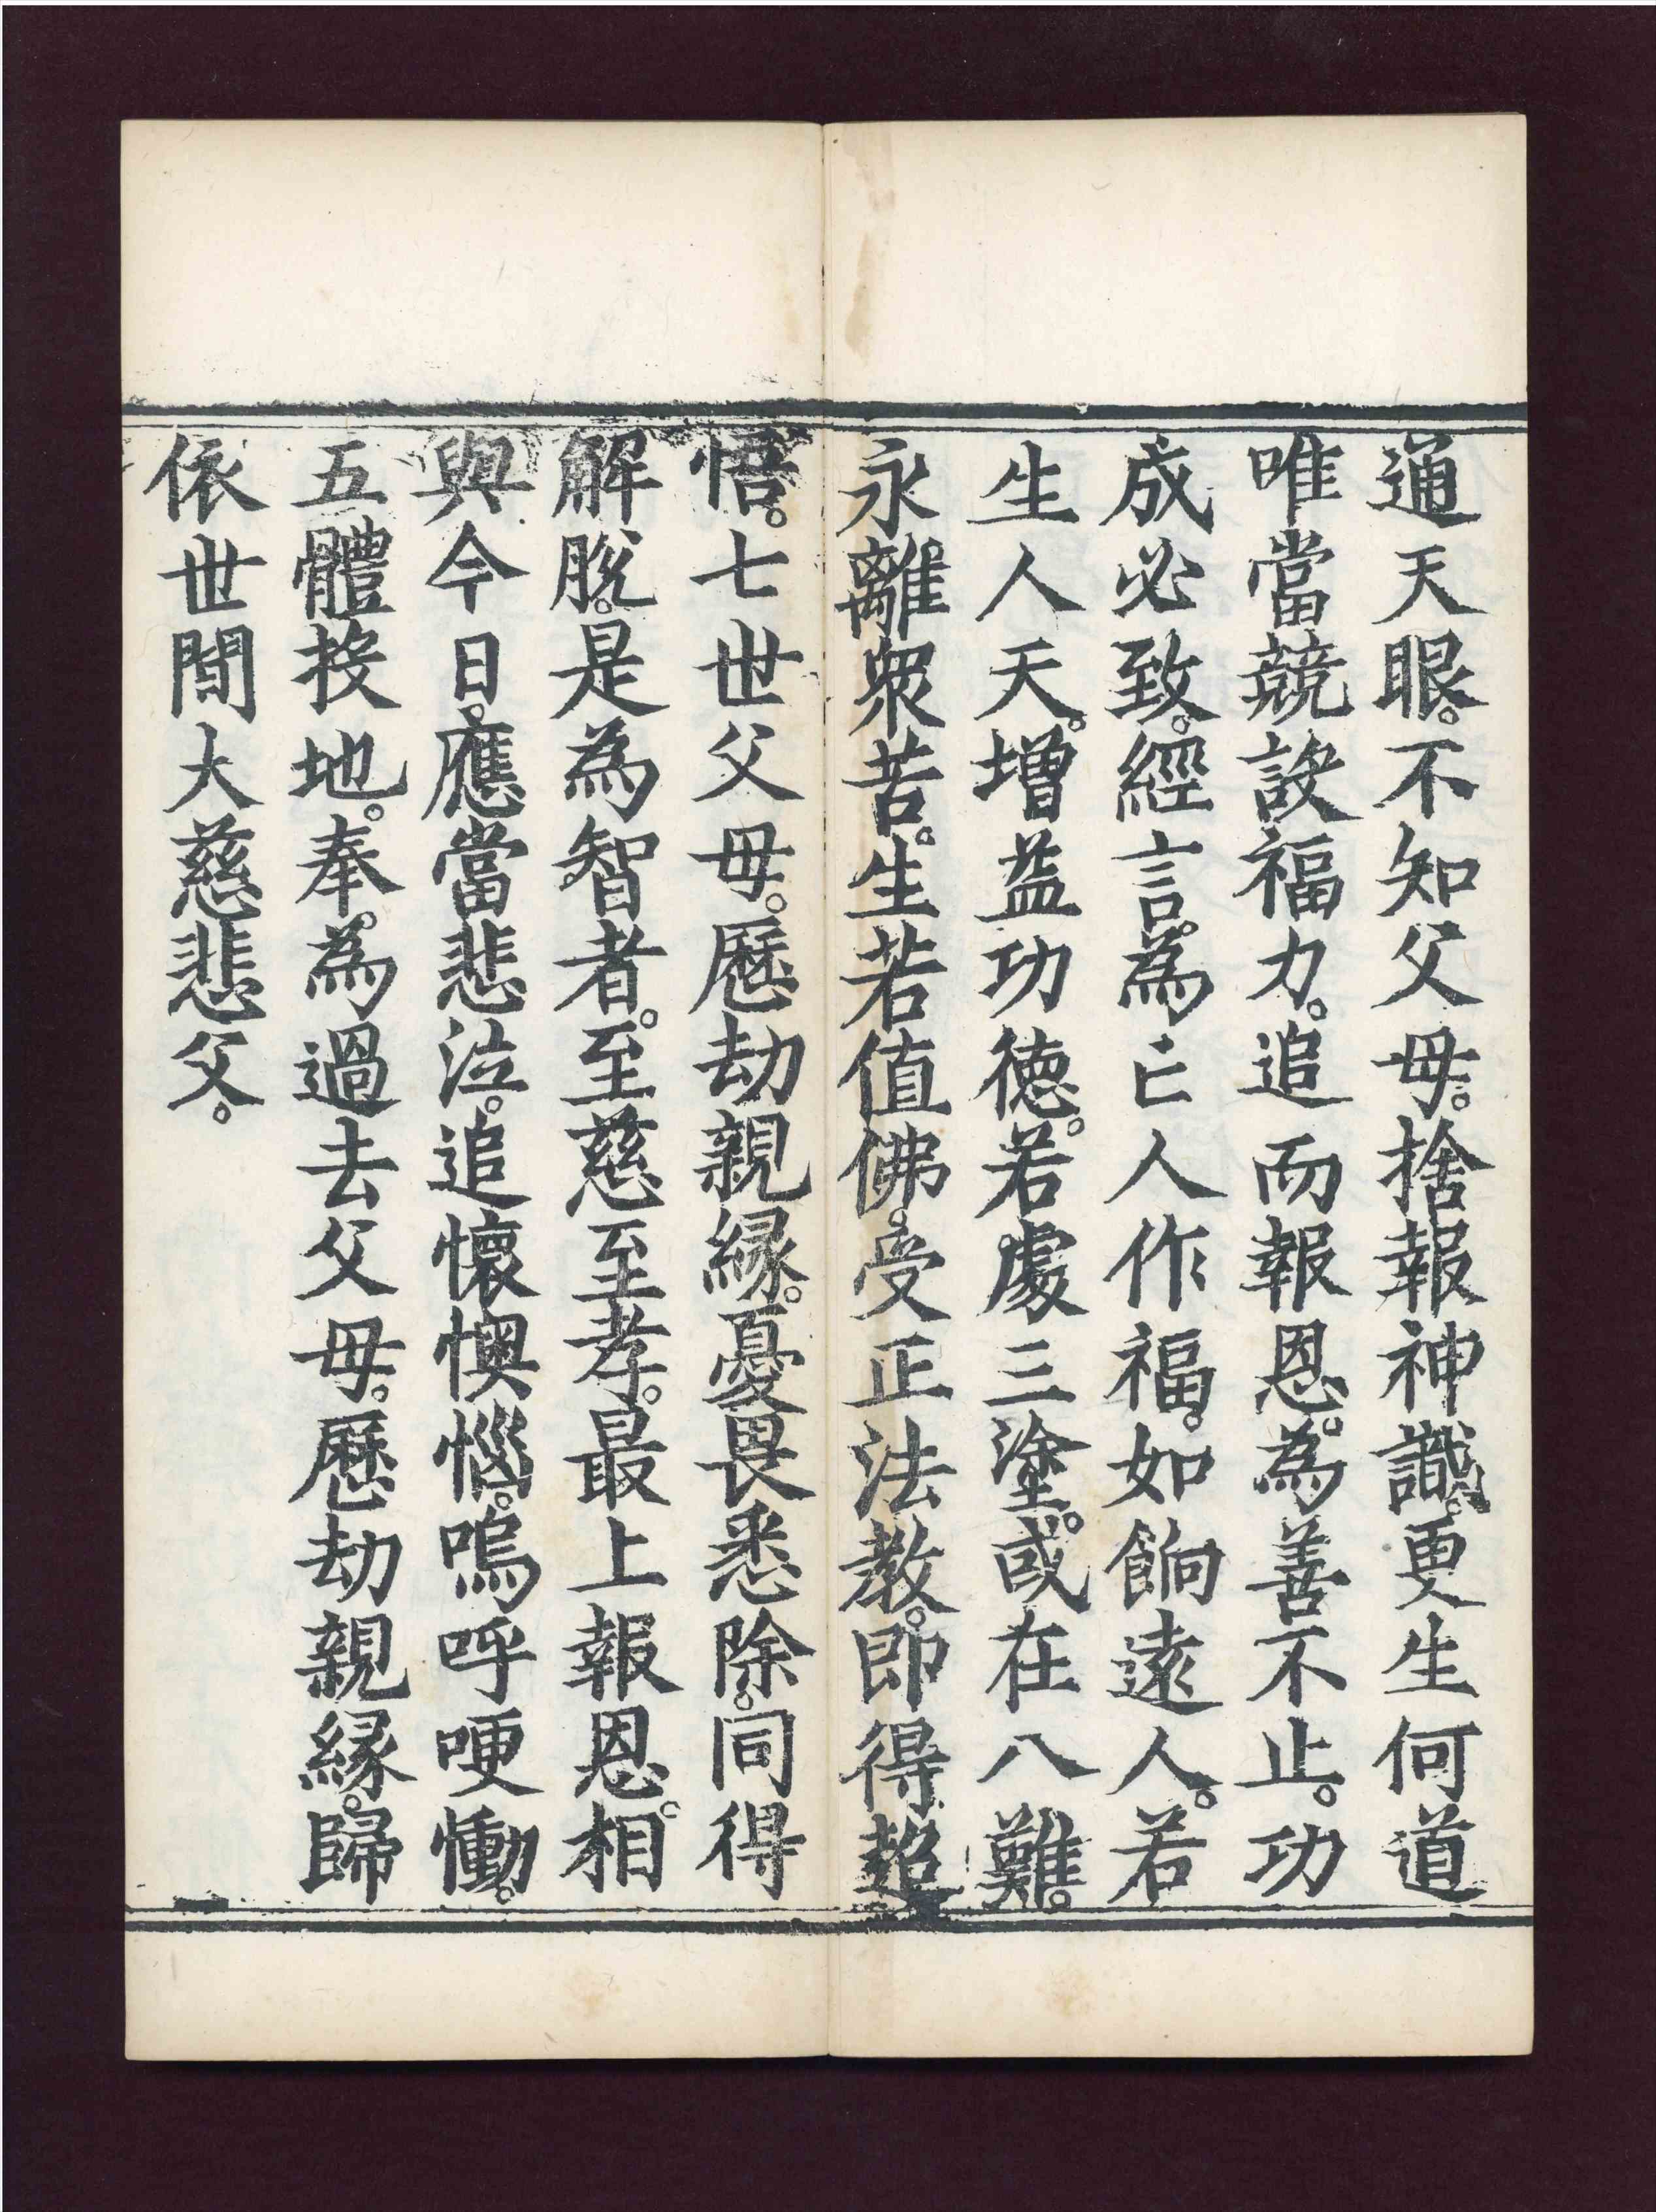 通天眼。不知父母。捨報神識。更生何道
唯當競設福力。追而報恩。為善不止。功
成必致。經言。為亡人作福。如餉遠人。若
生人天。增益功德。若處三塗。或在八難。
永離眾苦。生若值佛。受正法教。即得超
悟。七世父母。歷劫親緣。憂畏悉除。同得
解脫。是為智者。至慈至孝。最上報恩。相
與今日。應當悲泣。追懷懊惱。嗚呼哽慟。
五體投地。奉。為過去父母。歷劫親緣。歸
依世間大慈悲父。